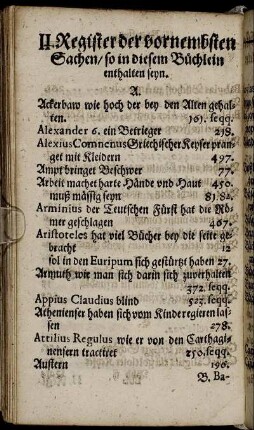 II. Register der vornembsten
Sachen/ so in diesem Büchlein
enthalten seyn.
A.
Ackerbaw wie hoch der bey den Alten gehal-
ten. 163. seqq.
Alexander 6. ein Betrieger 238.
Alexius Comnenus Griechischer Keyser pran-
get mit Kleidern 497.
Ampt bringet Beschwer 77.
Arbeit machet harte Hände und Haut 450.
muß mässig seyn 81.82.
Arminius der Teutschen Fürst hat die Rö-
mer geschlagen 467.
Aristoteles hat viel Bücher bey die seite ge-
bracht 12
sol in den Euripum sich gestürtzt haben 27.
Armuth wie man sich darin sich zuverhalten
372. seqq.
Appius Claudius blind 523. seqq.
Athenienser haben sich vom Kinde regieren las-
sen 278.
Attilius Regulus wie er von den Carthagi-
nensern tractiert 250. seqq.
Austern 196.
B. Ba-